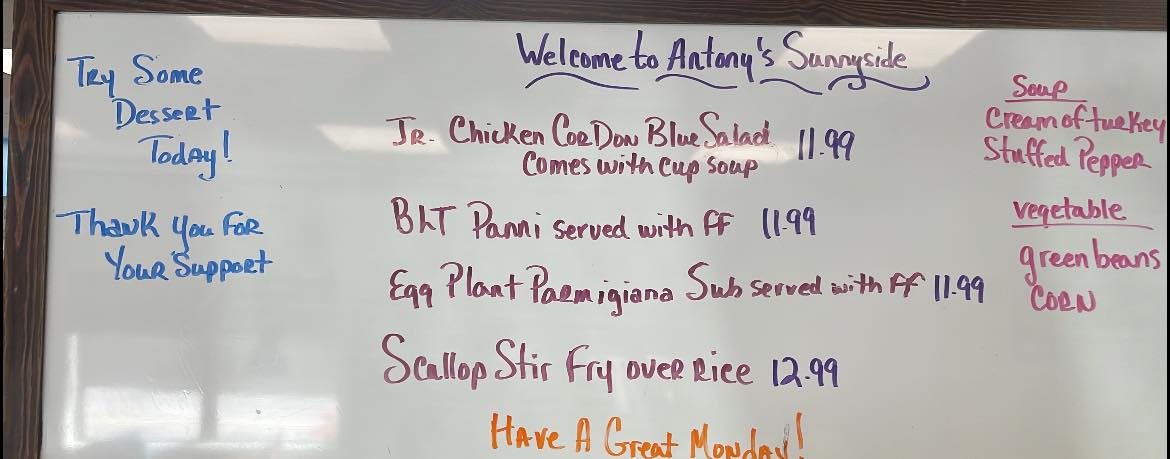 Try Some
Dessert
Today!
Thank you for
Your Support
Welcome to Antony's Sunnyside
JR. Chicken CorDon Blue Salad 11.99
Comes with cup soup
BLT Panni served with FF 11.99
Egg Plant Parmigiana Sub served with FF 11.99
Scallop Stir Fry over Rice 12.99
Have A Great Monday!
Soup
Cream of turkey
Stuffed Pepper
vegetable
green beans
CORN